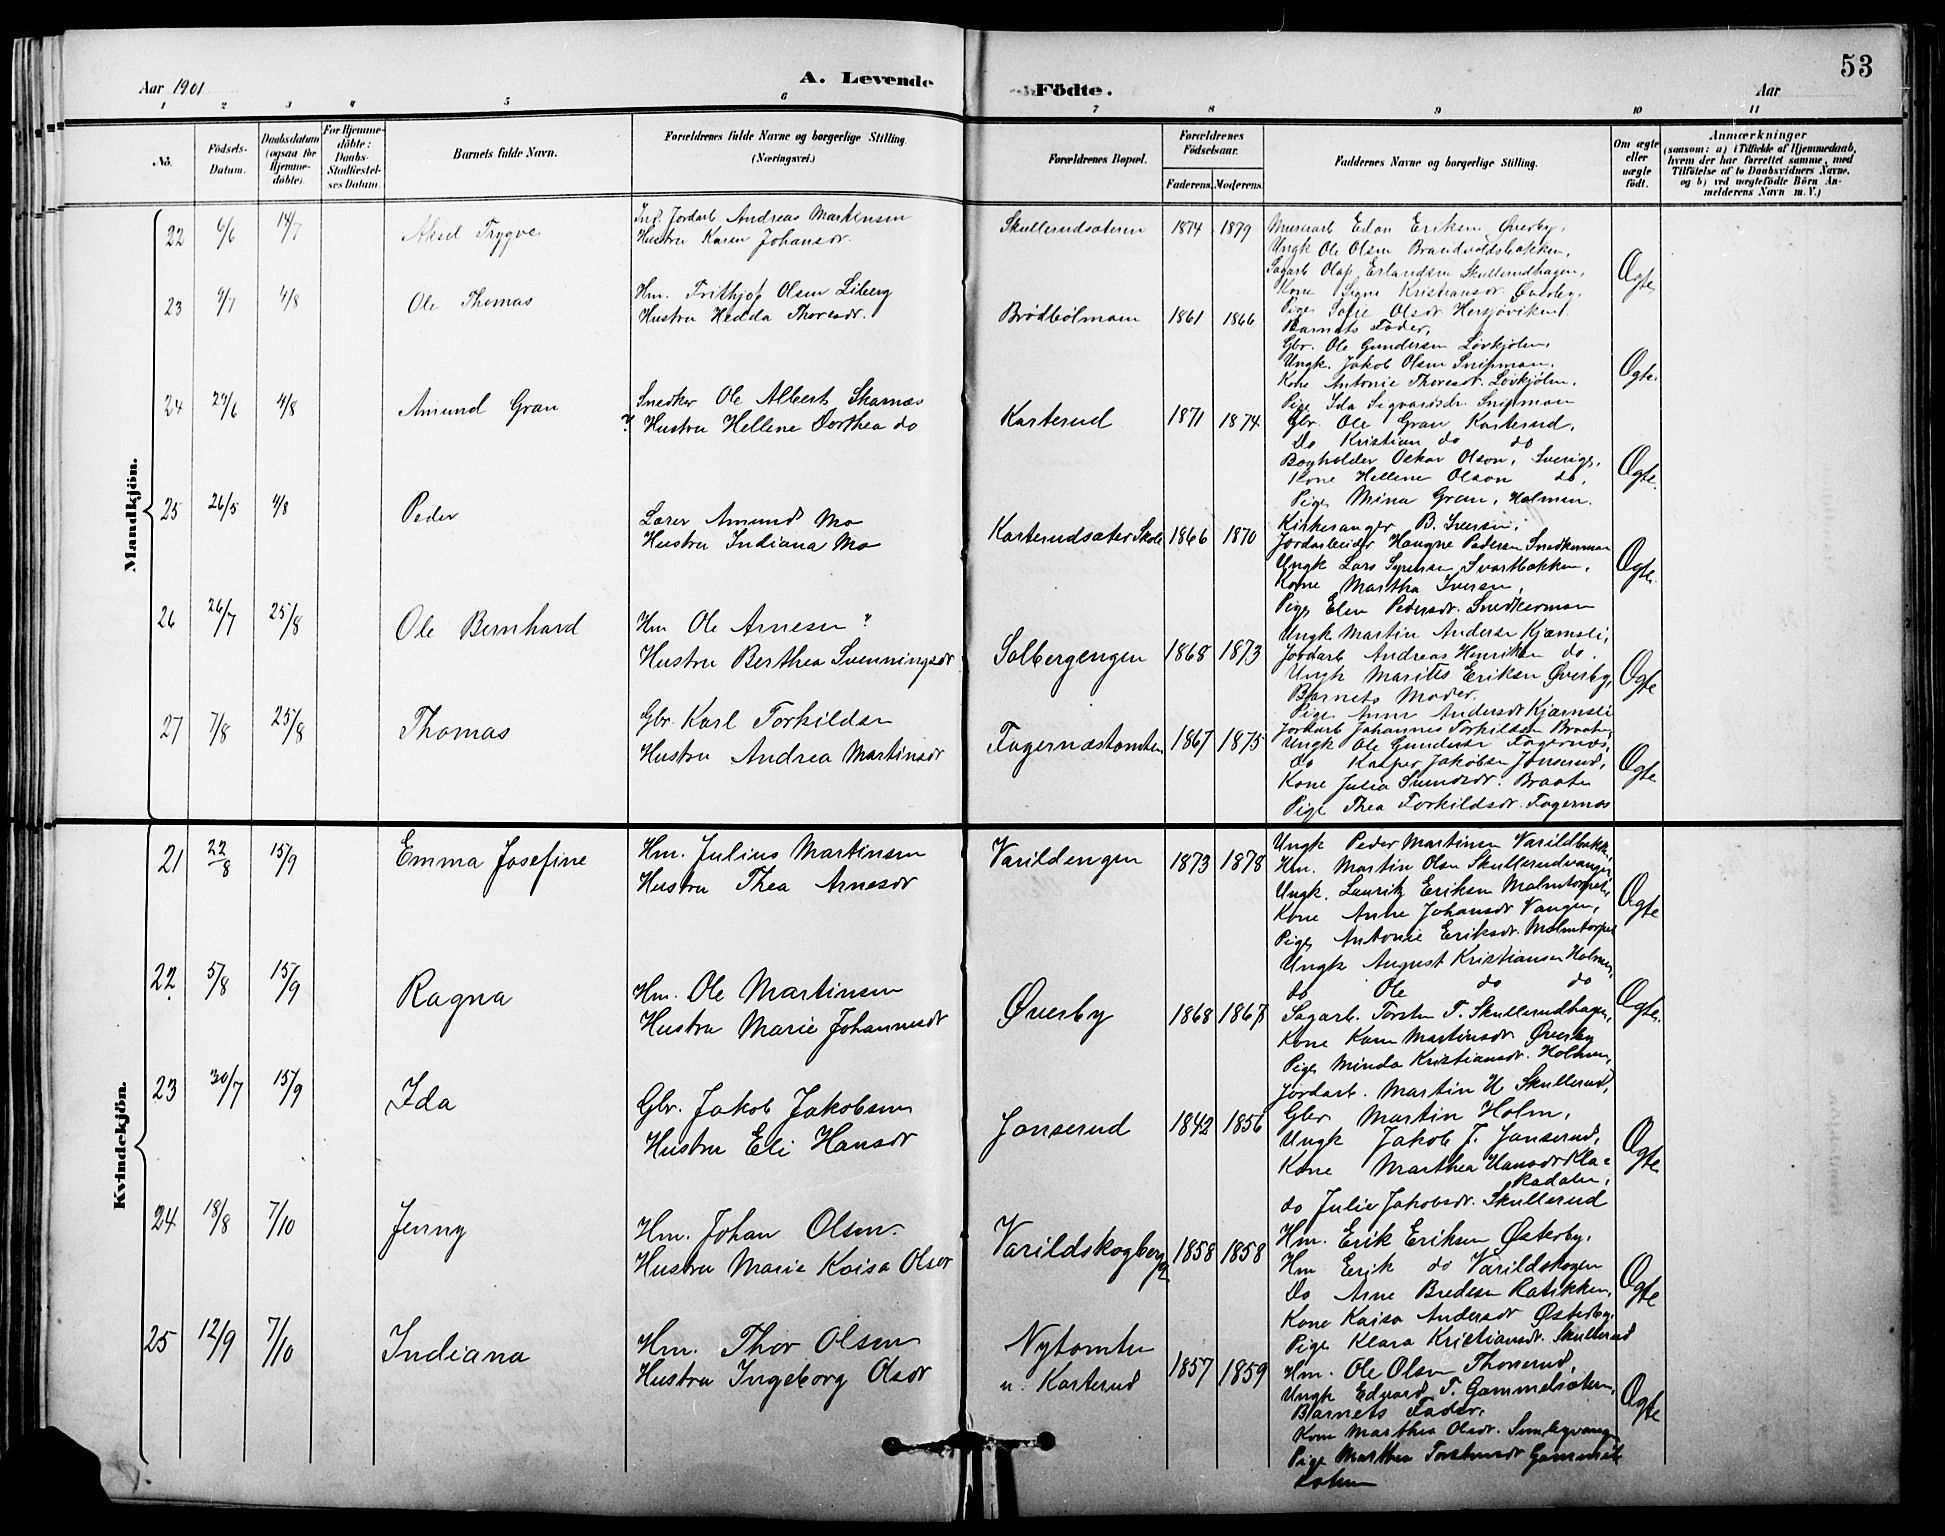 53
Aar 1901
A. Levende
Födte.
Aar
1 2 3 4 5 6 7 8 9 10 11
No.
Födsels-
Datum.
Daabsdatum
(ogsaa for
Hjemme-
döbte).
For Hjemme-
döbte:
Daabs-
Stadfæstel-
ses Datum.
Barnets fulde Navn.
Forældrenes fulde Navne og borgerlige Stilling.
(Næringsvei.)
Forældrenes Bopæl.
Forældrenes
Födselsaar.
Faderens. Moderens.
Faddernes Navne og borgerlige Stilling.
Om ægte
eller
uægte
födt.
Anmærkninger
(saasom: a) i Tilfælde af Hjemmedaab,
hvem der har forrettet samme, med
Tilföielse af to Daabsvidners Navne,
og b) ved uægtefödte Börn An-
melderens Navn m. V.)
Mandkjön.
22 6/6 14/7 Aksel Trygve
Jordarb Andreas Martinsen
Hustru Karen Johansdr.
Skullerudsæteren 1874 1879
Murerarb Edan Eriksen Øverby,
Ungk Ole Olsen Brandvoldsbakken,
Sagarb Olaf Erlandsen Skullerudhagen,
Kone Signe Kristiansdr. Øverby,
Pige Sofie Olsdr
Ægte
23 9/7 4/8 Ole Thomas
Hm. Frithjof Olsen Liberg
Hustru Hedda Thoresdr.
Brødbølmoen 1861 1866
Barnets Fader,
Gbr. Ole Gundersen Løvkjølen,
Ungk. Jakob Olsen Snipmoen,
Kone Antonie Thoresdr. Løvkjølen,
Pige Ida Sigvardsdr. Snipmoen
Ægte.
24 29/6 4/8 Amund Gran
Snedker Ole Albert Skarnæs
? Hustru Hellene Dorthea do
Karterud 1871 1874
Gbr. Ole Gran Karterud,
Do Kristian do do
Bogholder Oskar Olson, Sverige,
Kone Hellene Olson do,
Pige Mina Gran, Holmen.
Ægte.
25 26/5 4/8 Peder
Lærer Amund Mo
Hustru Indiana Mo
Karterudsæter Skole 1866 1870
Kirkesanger B. Iversen,
Jordarbeider Haagne Pedersen Snedkermoen
Ungk Lars Syversen Svartbakken,
Kone Martha Iversen,
Pige Elen Pedersdr. Snedkermoen
Ægte.
26 26/7 25/8 Ole Bernhard
Hm Ole Arnesen ?
Hustru Berthea Svenningsdr
Solbergengen 1868 1873
Ungk Martin Anderse Kjærnsli,
Jordarb Andreas Henriksen do.
Ungk Marites Eriksen Øverby,
Barnets Moder.
Pige Anne Andersdr Kjærnsli
Ægte
27 7/8 25/8 Thomas
Gbr. Karl Torkildsen
Hustru Andrea Martinsdr
Fagernæstomten 1867 1875
Jordarb Johannes Torkildsen Braaten,
Ungk Ole Gunderse Fagernæs,
Do Kasper Jakobsen Jonserud,
Kone Julia Svendsdr. Braaten
Pige Thea Torkildsdr. Fagernæs
Ægte
Kvindekjön.
21 22/8 15/9 Emma Josefine
Hm. Julius Martinsen
Hustru Thea Arnesdr
Varildengen 1873 1878
Ungk Peder Martinsen Varildbakk.,
Hm. Martin Olsen Skullerudvangen,
Ungk. Lauritz Eriksen Malmtorpet,
Kone Anne Johansdr Vangen,
Pige Antonie Eriksdr. Malmtorpet
Ægte
22 5/8 15/9 Ragna
Hm. Ole Martinsen
Hustru Marie Johannesdr
Øverby 1868 1867
Ungk August Kristiansen Holmen,
do Ole do do
Sagarb. Torsten T. Skullerudhagen,
Kone Karen Martinsdr Øverby
Pige Minda Kristiansdr. Holmen,
Ægte.
23 30/7 15/9 Ida
Gbr. Jakob Jakobsen
Hustru Eli Hansdr
Jonserud 1842 1856
Jordarb. Martin H Skullerud,
Gbr Martin Holm,
Ungk Jakob J. Jonserud,
Kone Marthea Hansdr Kla=
kadalen,
do Julie Jakobsdr. Skullerud
Ægte
24 18/8 7/10 Jenny
Hm. Johan Olsen.
Hustru Marie Kaisa Olsdr
Varildskogberg 1858 1858
Hm. Erik Eriksen Østerby,
Hm Erik do Varildskogen
Do Arne Bredesen Ratikken,
Kone Kaisa Andersdr Østerby,
Pige Klara Kristiansdr. Skullerud
Ægte
25 12/9 7/10 Indiana
Hm. Thor Olsen
Hustru Ingeborg Olsdr
Nytomten
u. Karterud 1857 1859
Hm. Ole Olsen Thonerud,
Ungk Edvard T. Gammelsæteren,
Barnets Fader,
Kone Marthea Olsdr.
Pige Marthea Torstensdr Gammel
sæteren
Ægte